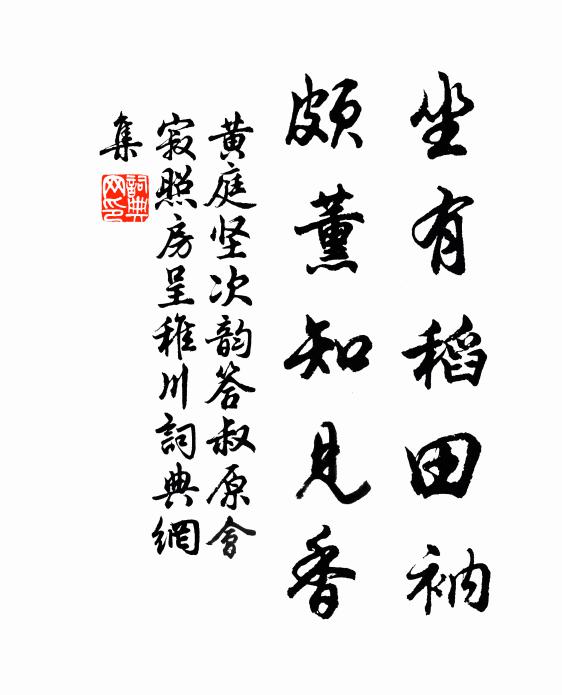 坐有稻田衲
頗薰知見香
黄庭坚次韵答叔原會
寂照房呈稚川詞典網
集
詞典网印